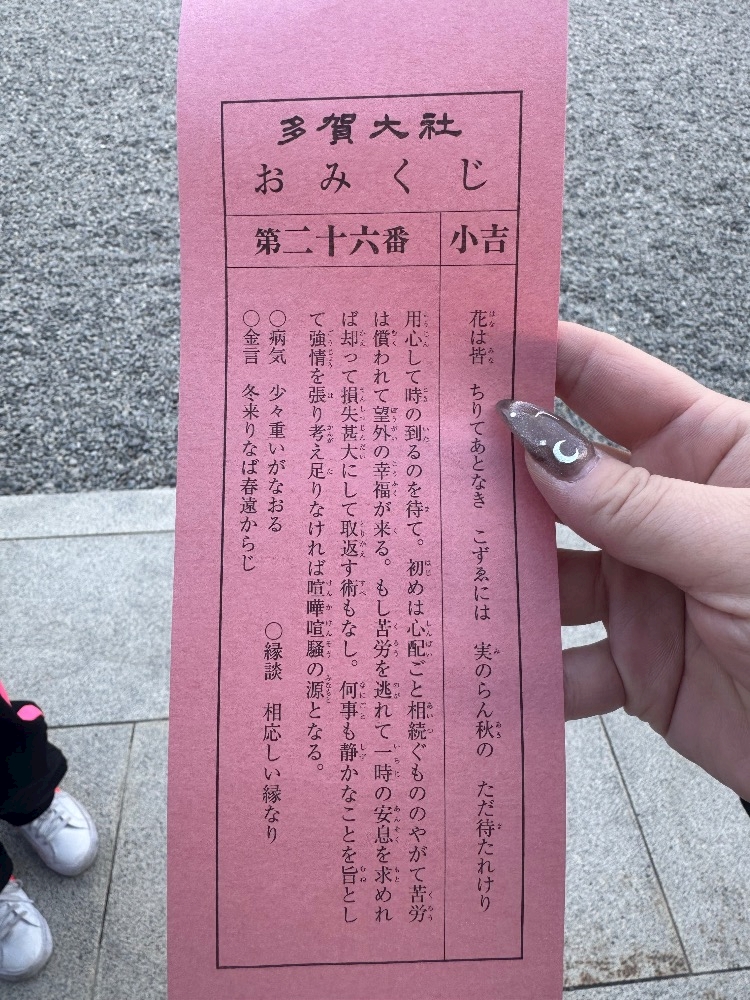 多賀大社
おみくじ
第二十六番
小吉
花は皆　ちりてあとなき　こずゑには　実のらん秋の　ただ待たれけり
用心して時の到るのを待て。初めは心配ごと相続ぐもののやがて苦労
は償われて望外の幸福が来る。もし苦労を逃れて一時の安息を求めれ
ば却って損失甚大にして取返す術もなし。何事も静かなことを旨とし
て強情を張り考え足りなければ喧嘩喧騒の源となる。
○病気　少々重いがなおる　○縁談　相応しい縁なり
○金言　冬来りなば春遠からじ